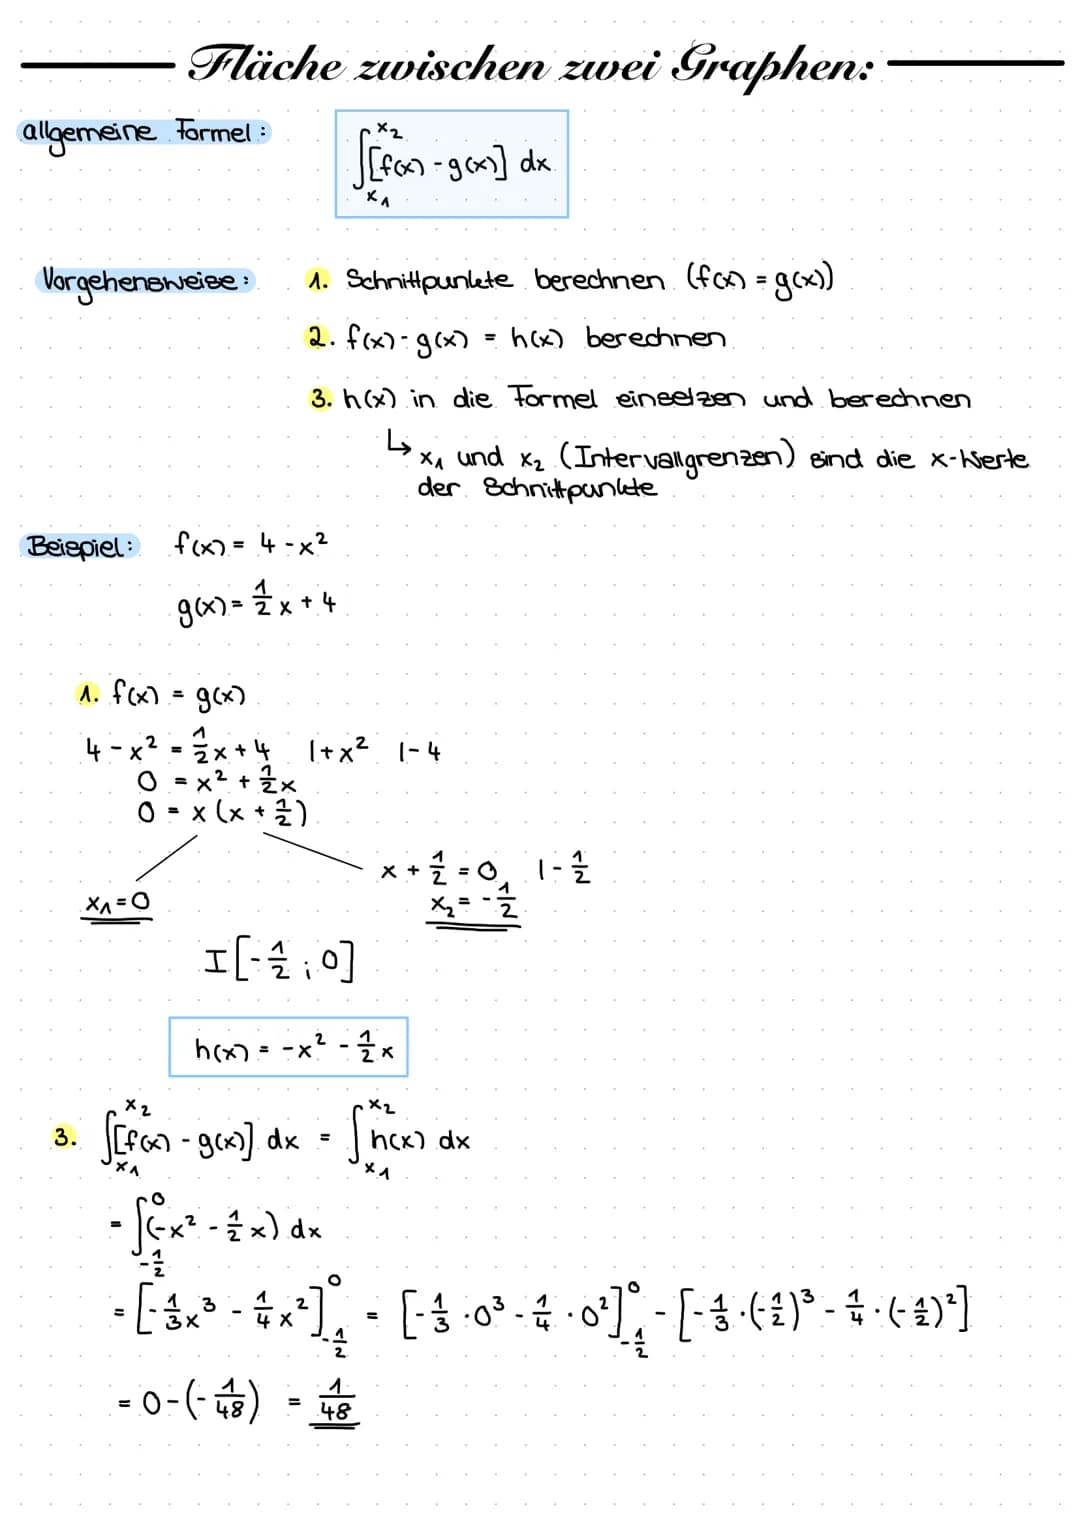 Fläche zwischen zwei Graphen:
allgemeine Formel:
∫[f(x) - g(x)] dx
x₂
x₁
Vorgehensweise:
1. Schnittpunkte berechnen (f(x) = g(x))
2. f(x) - g(x) = h(x) berechnen
3. h(x) in die Formel einsetzen und berechnen
↳ x₁ und x₂ (Intervallgrenzen) sind die x-Werte
der Schnittpunkte
Beispiel: f(x) = 4 - x²
g(x) = 1/2 x + 4
1. f(x) = g(x)
4 - x² = 1/2 x + 4 |+x² |-4
0 = x² + 1/2 x
0 = x (x + 1/2)
x + 1/2 = 0 |- 1/2
x₁ = 0 x₂ = - 1/2
I [- 1/2 ; 0]
h(x) = -x² - 1/2 x
3. ∫_{x₁}^{x₂} [f(x) - g(x)] dx = ∫_{x₁}^{x₂} h(x) dx
= ∫_{-1/2}^{0} (-x² - 1/2 x) dx
= [- 1/3 x³ - 1/4 x²]_{-1/2}^{0} = [- 1/3 · 0³ - 1/4 · 0²]_{-1/2}^{0} - [- 1/3 · (- 1/2)³ - 1/4 · (- 1/2)²]
= 0 - (- 1/48) = 1/48